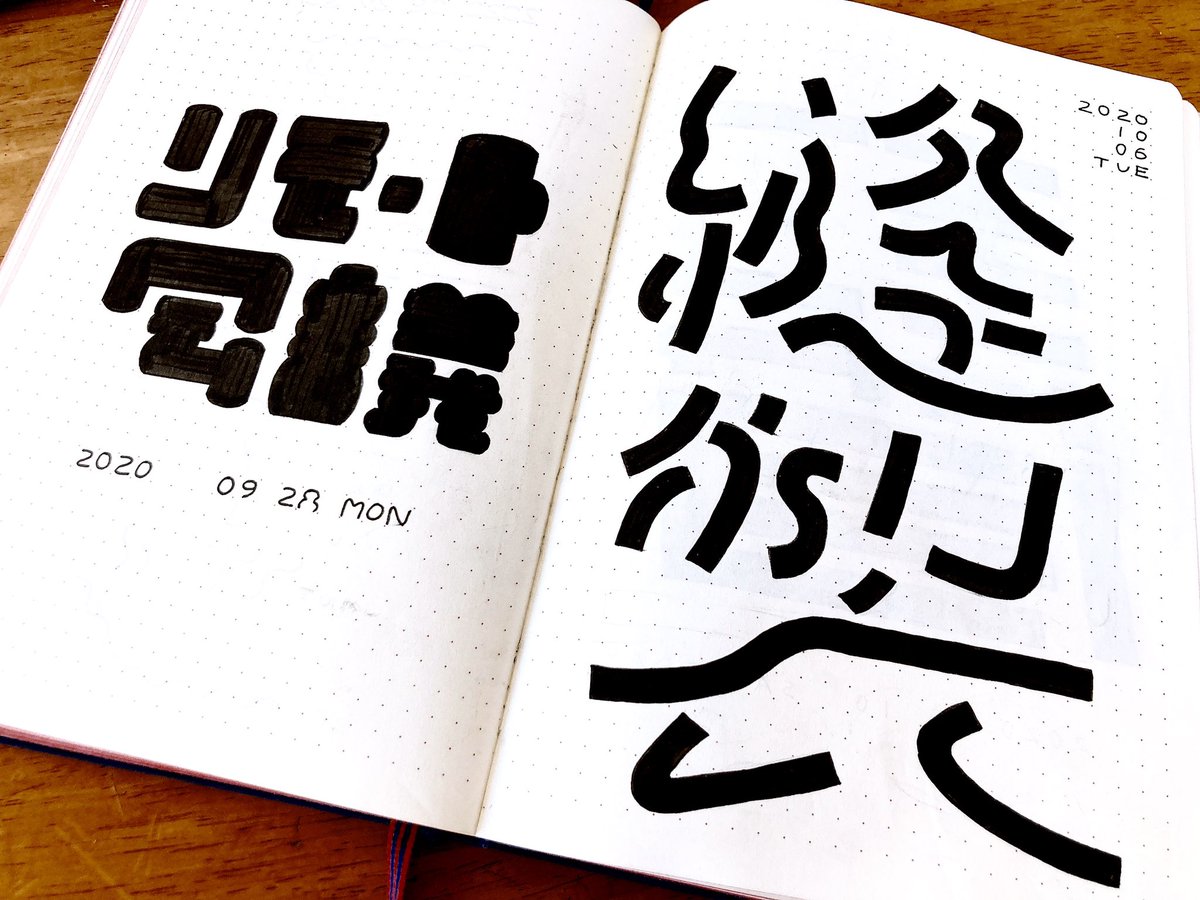 リモート
会議
2020 09 28 MON
2020
10
06
TUE
縫
製